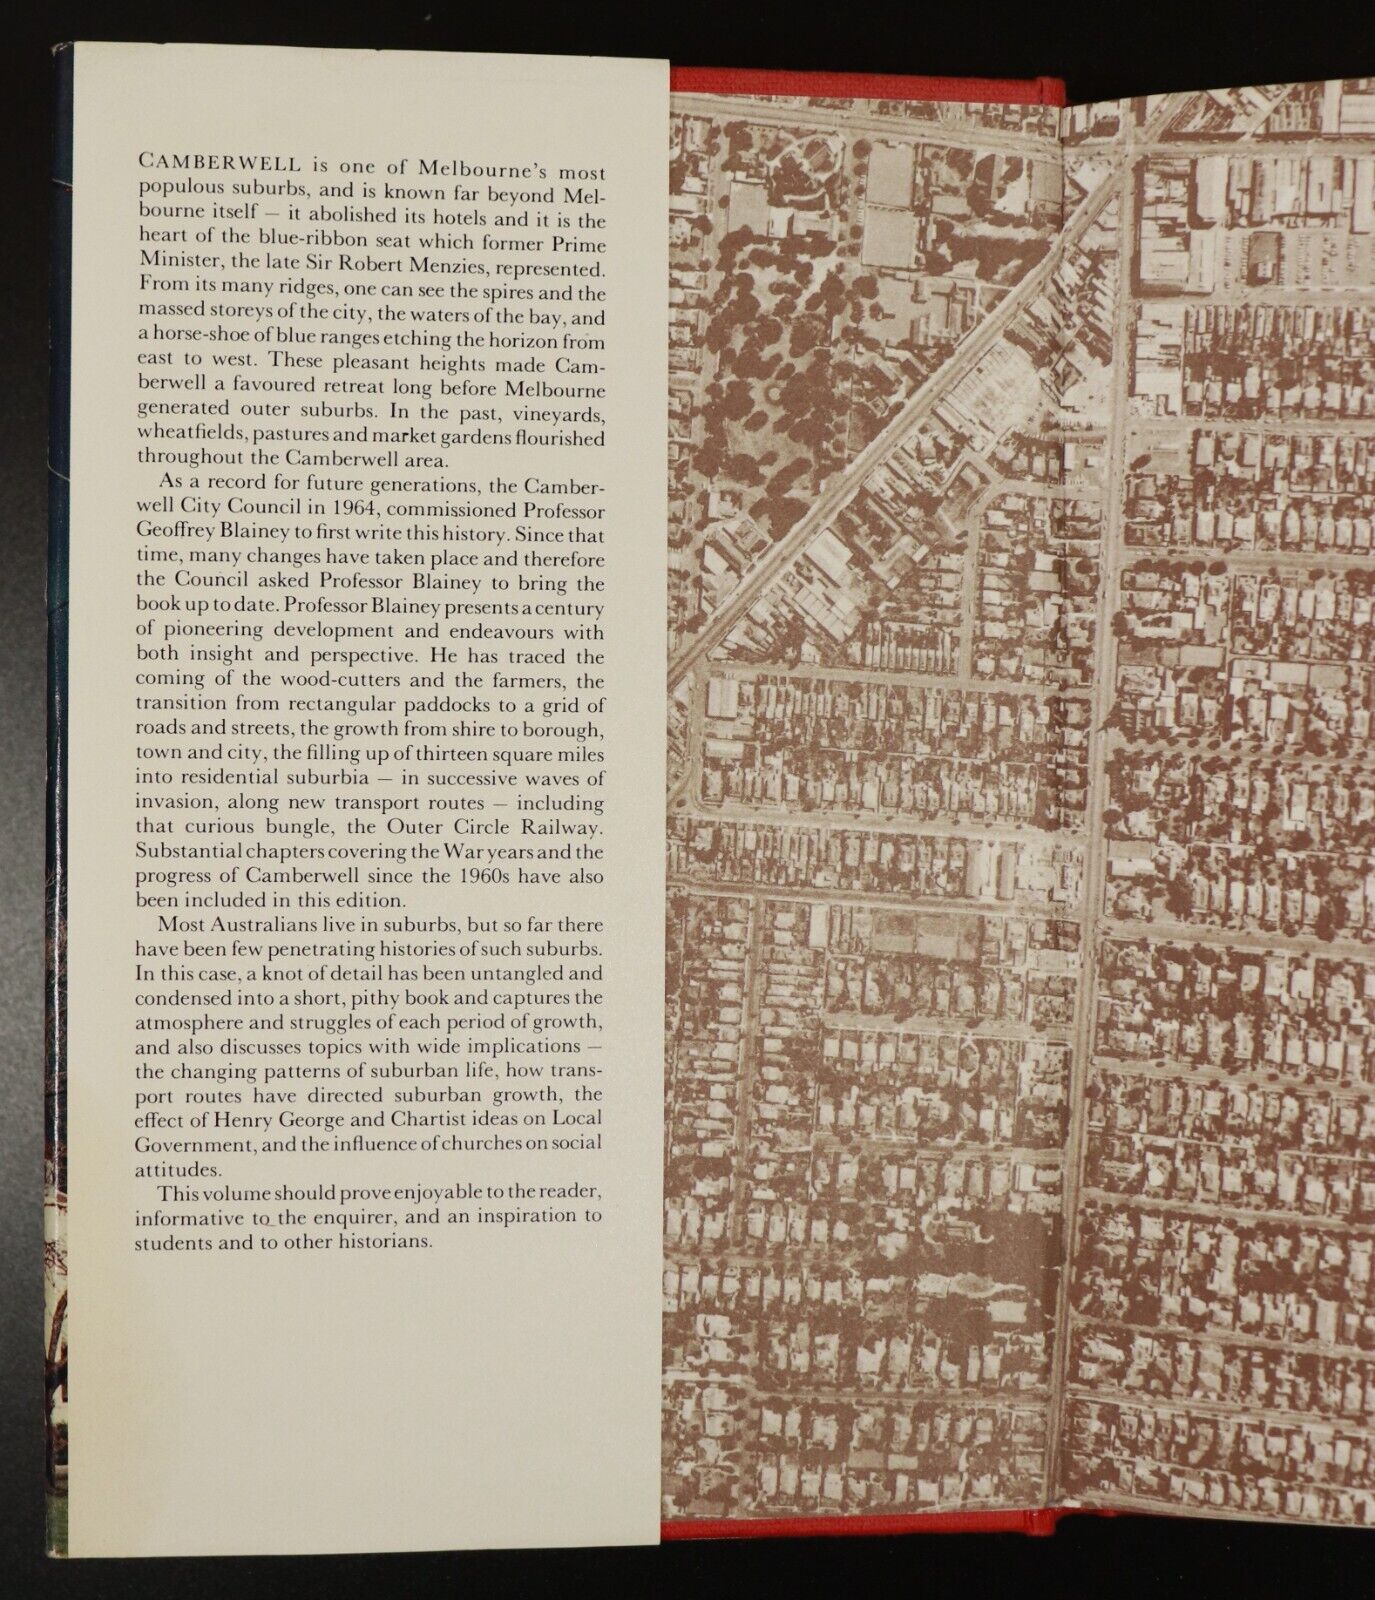 CAMBERWELL is one of Melbourne's most
populous suburbs, and is known far beyond Mel-
bourne itself — it abolished its hotels and it is the
heart of the blue-ribbon seat which former Prime
Minister, the late Sir Robert Menzies, represented.
From its many ridges, one can see the spires and the
massed storeys of the city, the waters of the bay, and
a horse-shoe of blue ranges etching the horizon from
east to west. These pleasant heights made Cam-
berwell a favoured retreat long before Melbourne
generated outer suburbs. In the past, vineyards,
wheatfields, pastures and market gardens flourished
throughout the Camberwell area.
As a record for future generations, the Camber-
well City Council in 1964, commissioned Professor
Geoffrey Blainey to first write this history. Since that
time, many changes have taken place and therefore
the Council asked Professor Blainey to bring the
book up to date. Professor Blainey presents a century
of pioneering development and endeavours with
both insight and perspective. He has traced the
coming of the wood-cutters and the farmers, the
transition from rectangular paddocks to a grid of
roads and streets, the growth from shire to borough,
town and city, the filling up of thirteen square miles
into residential suburbia — in successive waves of
invasion, along new transport routes — including
that curious bungle, the Outer Circle Railway.
Substantial chapters covering the War years and the
progress of Camberwell since the 1960s have also
been included in this edition.
Most Australians live in suburbs, but so far there
have been few penetrating histories of such suburbs.
In this case, a knot of detail has been untangled and
condensed into a short, pithy book and captures the
atmosphere and struggles of each period of growth,
and also discusses topics with wide implications —
the changing patterns of suburban life, how trans-
port routes have directed suburban growth, the
effect of Henry George and Chartist ideas on Local
Government, and the influence of churches on social
attitudes.
This volume should prove enjoyable to the reader,
informative to the enquirer, and an inspiration to
students and to other historians.